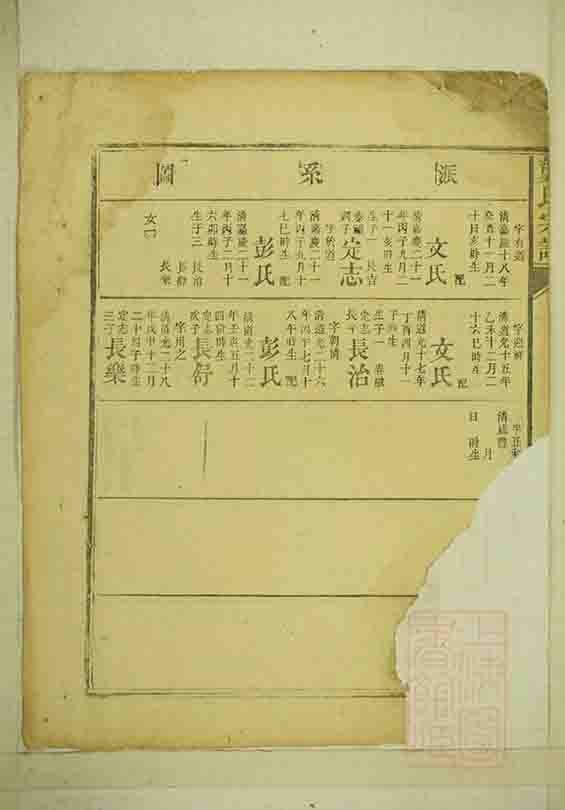 圖系派
字有道
清嘉慶十八年
癸酉十一月二
十日亥時生
配
文氏
清嘉慶二十一
年丙子九月二
十一亥時生
生子一 長吉
次子
定志
字於道
清嘉慶二十一
年丙子九月十
七巳時生 配
彭氏
清嘉慶二十一
年丙子二月十
六卯時生
生子三 長治
長舒
長樂
女一
清道光十五年
乙未十二月二
十六巳時生
配
文氏
清道光十七年
丁酉四月十一
子時生
生子一
定志
長子
長治
字朝清
清道光二十六
年丙午七月十
八午時生 配
彭氏
清道光二十二
年壬寅五月十
四辰時生
定志
次子
長舒
字用之
清道光二十八
年戊申十二月
二十四子時生
定志
三子
長樂
清咸豐
月
日 時生